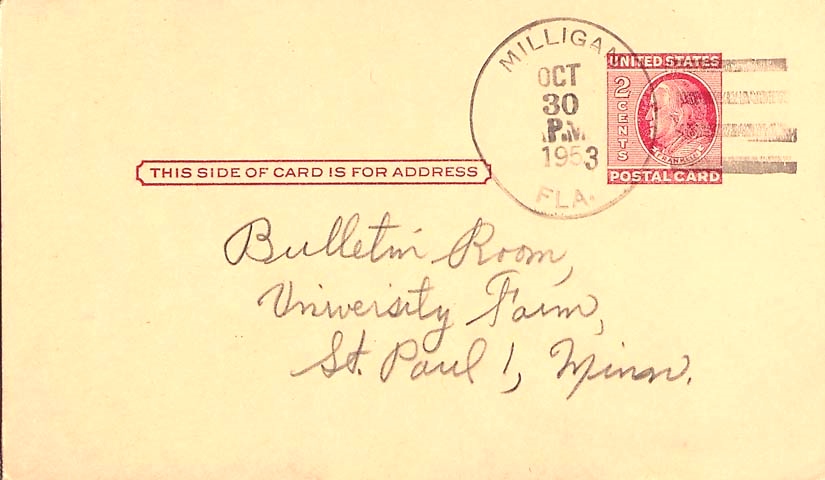 MILLIGAN
OCT
30
P.M.
1953
FLA.
UNITED STATES
2 CENTS
FRANKLIN
POSTAL CARD
THIS SIDE OF CARD IS FOR ADDRESS
Bulletin Room,
University Farm,
St. Paul 1, Minn.